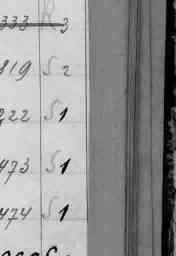 333 R 3
819 S 2
222 S 1
473 S 1
474 S 1